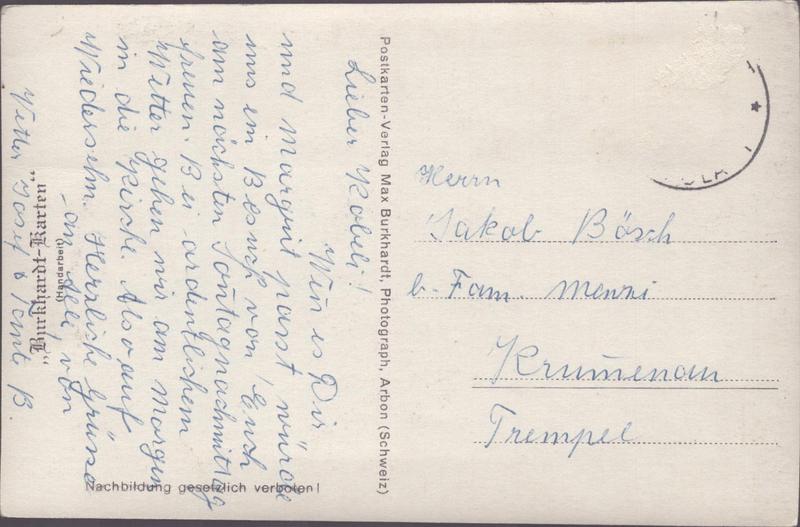 Lieber Köbeli!
Wen es Dir
und Margrit passt würde
uns ein Besuch von Euch
am nächsten Sontagnachmittag
freuen. Bei ordentlichem
Wetter gehen wir am Morgen
in die Kirche. Also auf
Wiedersehn. Herzliche Grüsse
von
Vetter Josef & B.
"Burkhardt-Karten"
(Handarbeit)
Nachbildung gesetzlich verboten!
Postkarten-Verlag Max Burkhardt, Photograph, Arbon (Schweiz)
Herrn
Jakob Bösch
b. Fam. Menzi
Krumenau
Trempel